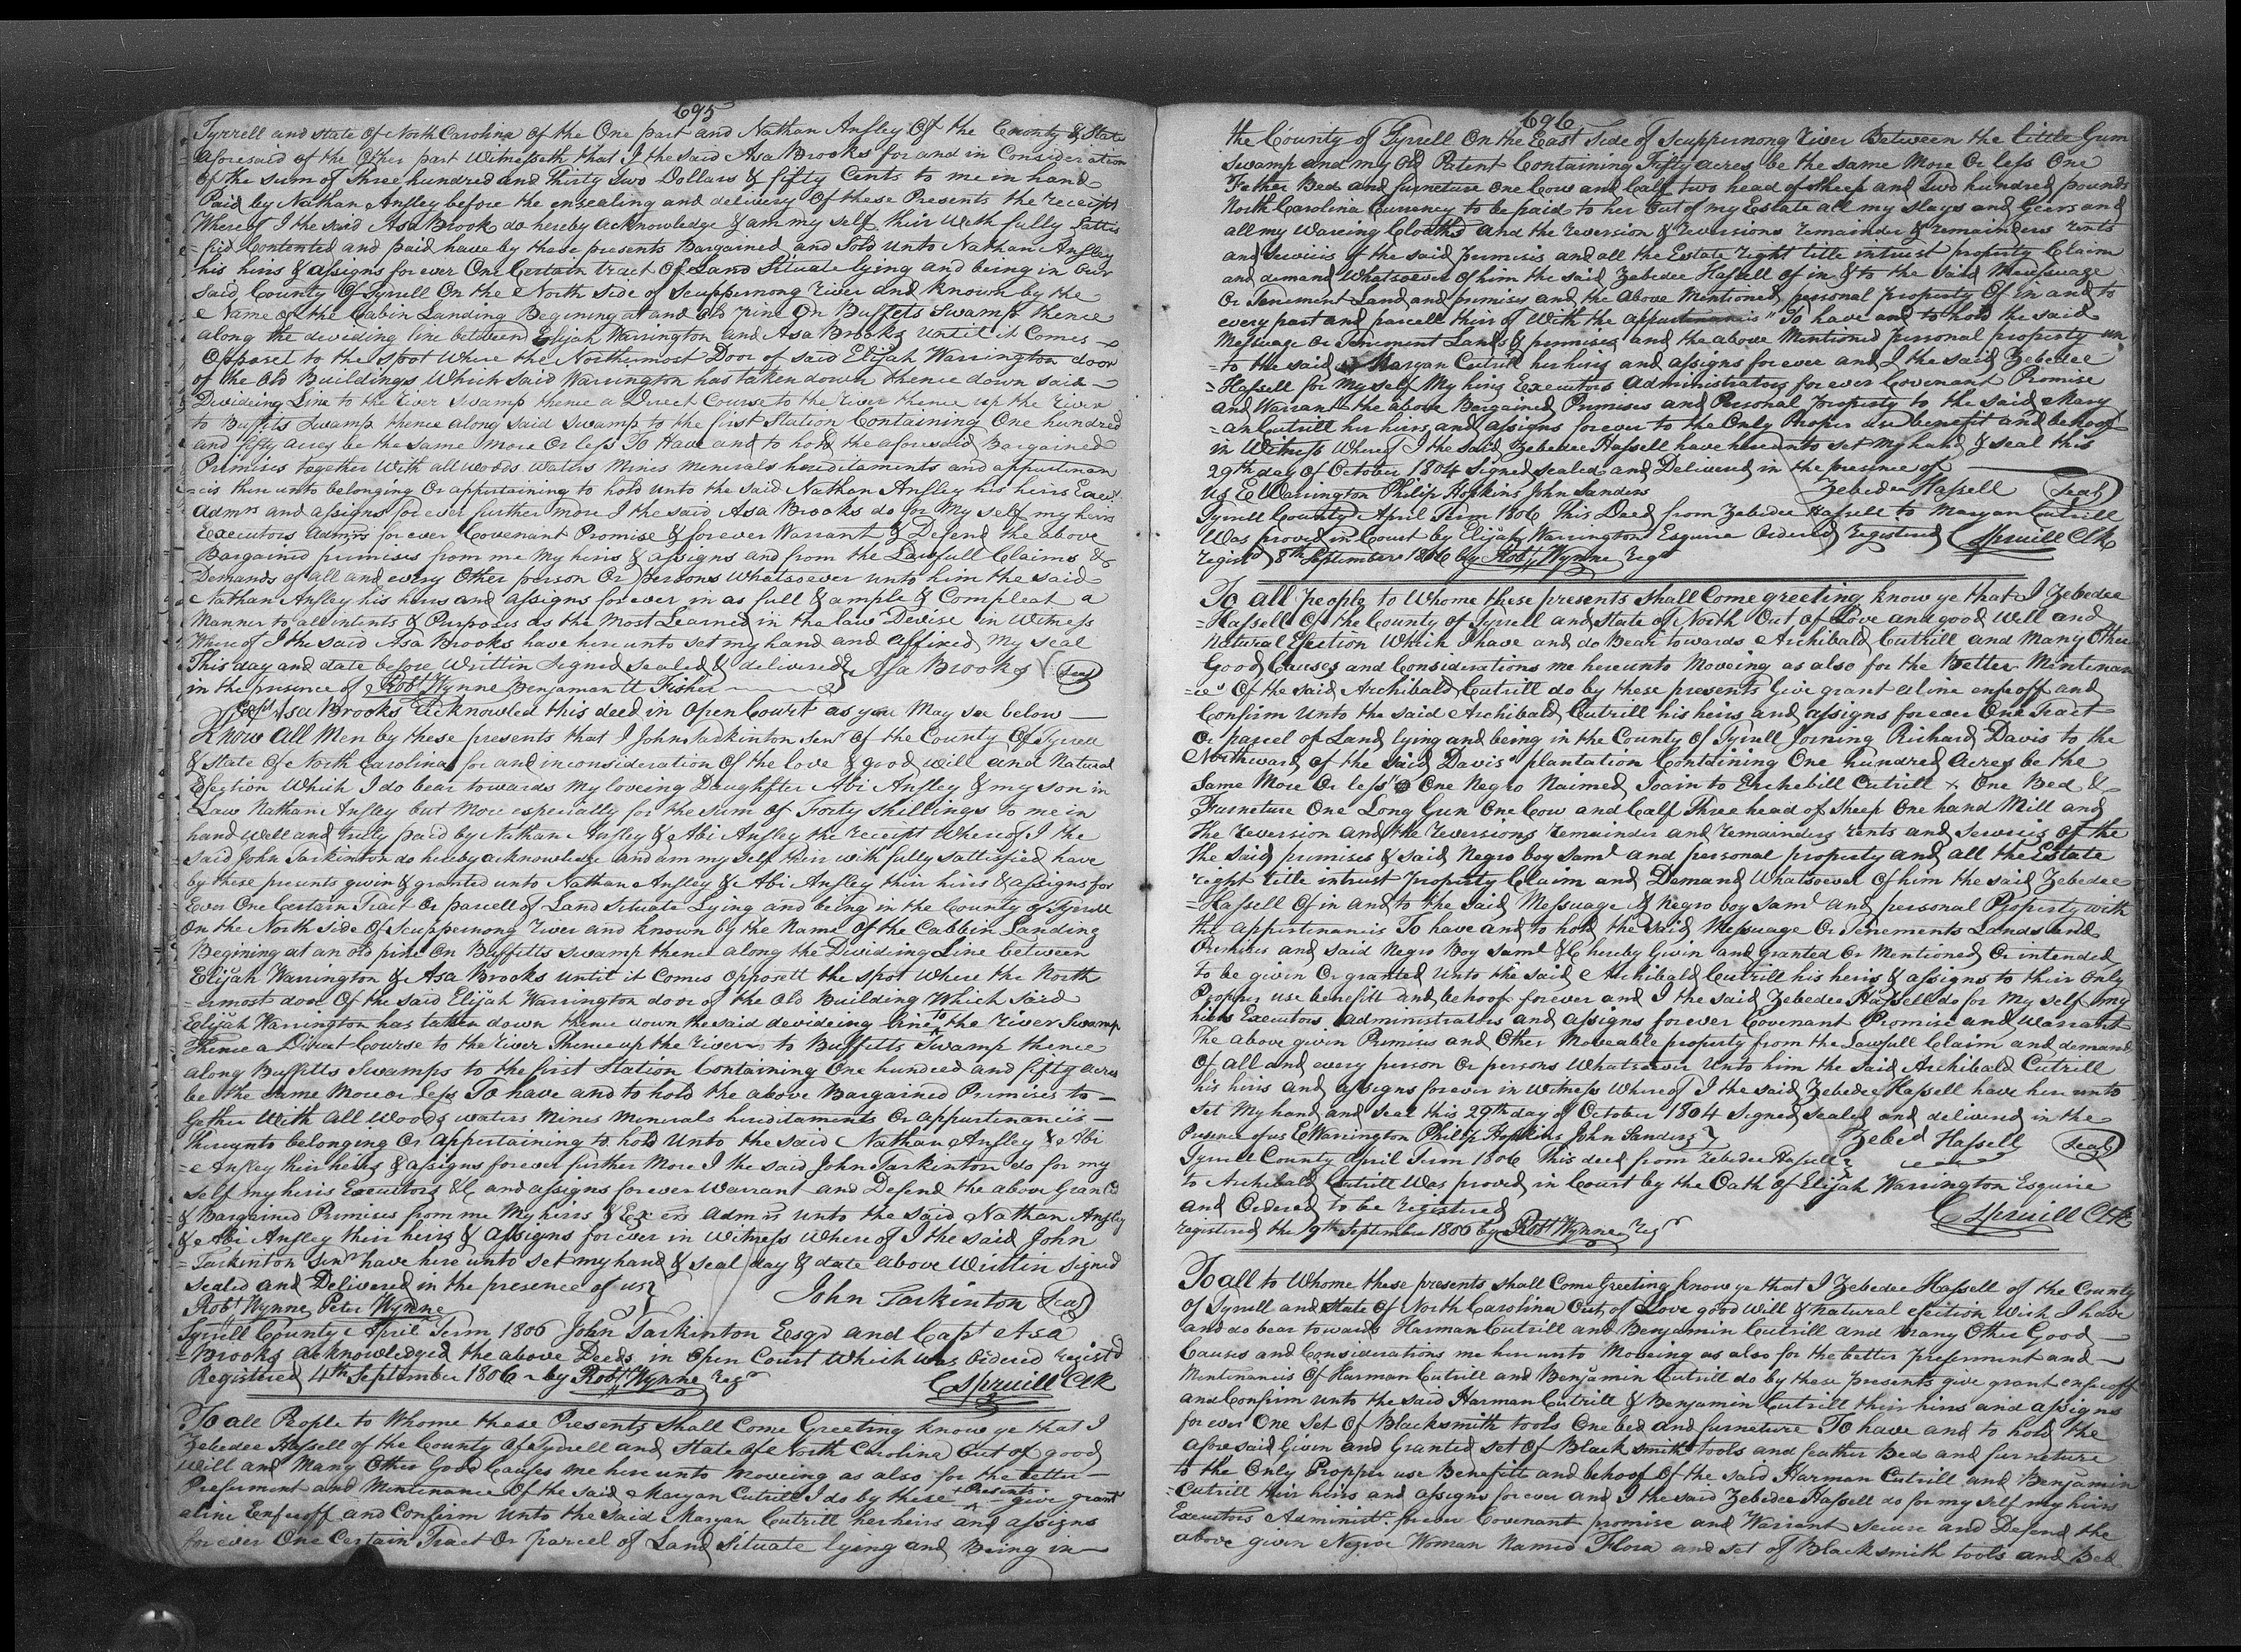 695
Tyrrell and state of North Carolina of the One part and Nathan Ansley Of the County & State
aforesaid of the Other part Witnesseth that I the said Asa Brooks for and in Consideration
Of the sum of Three hundred and Thirty Two Dollars & fifty Cents to me in hand
Paid by Nathan Ansley before the ensealing and delivery Of these Presents the receipt
Where of I the said Asa Brook do hereby acknowledge & am my self their with fully Sattis
=fied Contented and paid have by these presents Bargained and Sold unto Nathan Ansley
his heirs & assigns for ever One Certain tract Of Land Situate lying and being in Our
said County Of Tyrrell On the North side of Scuppernong River and known by the
Name of the Cabin Landing Begining at and old pine On Buffets Swamp thence
along the deviding line between Elijah Warrington and Asa Brooks until it Comes
Opposet to the spot where the Northermost Door of said Elijah Warrington door
of the Old Buildings Which said Warrington has taken down thence down said
Devideing Line to the River Swamp thence a Direct Course to the River thence up the River
to Buffits Swamp thence along said Swamp to the first Station Containing One hundred
and fifty acres be the same more Or less To Have and to hold the aforesaid Bargained
Primises together With all woods waters mines minerals hereditaments and appurtinan
=cis there unto belonging Or appertaining to hold unto the said Nathan Ansley his heirs Execr
Admrs and assigns for ever further more I the said Asa Brooks do for My self my heirs
Executors Admrs for ever Covenant Promise & forever Warrant & Defend the above
Bargained primises from me My heirs & assigns and from the Lawfull Claims &
Demands of all and every Other person Or persons Whatsoever unto him the said
Nathan Ansley his heirs and assigns for ever in as full & ample & Compleat a
Manner to all intents & Purposes as the Most Learned in the law Devise in Witness
Where of I the said Asa Brooks have here unto set my hand and affixed My seal
This day and date before Written Signed sealed & delivered Asa Brooks (Seal)
in the presence of Robt Wynne Benjaman tt Fisher
Capt Asa Brooks Acknowled this deed in Open Court as you May see below
Know All Men by these presents that I John Tarkinton Senr Of the County Of Tyrrell
& State Of North Carolina for and inconsideration Of the love & good will and Natural
Efection Which I do bear towards My loveing Daughfter Abi Ansley & my son in
Law Nathan Ansley but More especially for the sum of Forty Shillings to me in
hand Well and truly paid by Nathan Ansley & Abi Ansley the receipt Where of I the
said John Tarkinton do hereby acknowledge and am my self their with fully sattisfied have
by these presents givin & granted unto Nathan Ansley & Abi Ansley their heirs & assigns for
Ever One Certain Tract Or parcell of Land Situate Lying and being in the County of Tyrrell
On the North side Of Scuppernong River and known by the Name Of the Cabbin Landing
Begining at an old pine On Buffitts swamp thence along the Dividing Line between
Elijah Warrington & Asa Brooks until it Comes Opposett the spot Where the North
=ermost door Of the said Elijah Warrington door of the Old Building Which said
Elijah Warrington has taken down thence down the said devideing line to the River Swamp
Thence a Direct Course to the River Thence up the River to Buffitts Swamp thence
along Buffitts Swamps to the first Station Containing One hundred and fifty acres
be the same More or Less To have and to hold the above Bargained Primises to
Gether With all Woods waters Mines Minerals hereditaments Or appurtenancis
Thereunto belonging Or appertaining to hold Unto the said Nathan Ansley & Abi
Ansley their heirs & assigns forever further More I the said John Tarkinton do for my
self my heirs Executors &C and assigns forever Warrant and Defend the above Granted
& Bargained Primises from me My heirs & Ex ers Adm rs unto the said Nathan Ansley
& Abi Ansley their heirs & Assigns for ever in Witness Where of I the said John
=Tarkinton Senr have here unto set my hand & seal day & date above Written Signed
sealed and Delivered in the presence of us
Robt Wynne Peter Wynne John Tarkinton (Seal)
Tyrrell County April Term 1806 John Tarkinton Esqr and Capt Asa
=Brooks acknowledged the above Deeds in Open Court Which was Ordered Registd
Registered 4th September 1806 by Robt Wynne Regr C Spruill Clk
To all People to Whome these Presents Shall Come Greeting know ye that I
Zebedee Hassell of the County Of Tyrrell and State Of North Carolina Out of good
Will and Many Other Good Causes me here unto moveing as also for the better
Preferment and Mentenance Of the said Maryan Cutrill I do by these Presents give grant
aline Enfeoff and Confirm Unto the said Maryan Cutrill her heirs and assigns
for ever One Certain Tract Or parcel of Land Situate lying and Being in
696
the County of Tyrrell On the East Side of Scuppernong River Between the Little Gum
Swamp and my Old Patent Containing Fifty acres be the same More Or less One
Fether Bed and furneture One Cow and Calf two head of sheep and Two hundred pounds
North Carolina Currency to be paid to her Out of my Estate all my Slays and Geers and
all my Wareing Cloaths and the reversion & reversions remainder & remainders rents
and serviis of the said premises and all the Estate right title intrust property Claim
and demand Whatsoever Of him the said Zebedee Hassell of in & to the said Messuage
Or Tenement Land and premises and the above Mentioned personal property Of in and to
every part and parcell their of With the appurtinancis" To have and to hold the said
Messuage Or Tenement Lands & premises and the above Mentioned personal property un
=to the said Maryan Cutrill her heirs and assigns for ever and I the said Zebedee
=Hassell for My self My heirs Executors Administrators for ever Covenant Promise
and Warrant the above Bargained Primises and Personal property to the said Mary
=an Cutrill her heirs and assigns forever to the Only Proper use benefit and behoof
in Witness Where of I the said Zebedee Hassell have hereunto set My hand & seal this
29th day Of October 1804 Signed sealed and Delivered in the presence of
Us E Warrington Philip Hopkins John Sanders Zebedee Hassell (Seal)
Tyrrell County April Term 1806 This Deed from Zebedee Hassell to Maryan Cutrill
Was proved in Court by Elijah Warrington Esquire Ordered Registered C Spruill Clk
registd 8th September 1806 by Robt Wynne Regr
To all People to Whome these presents Shall Come greeting know ye that I Zebedee
=Hassell Of the County of Tyrrell and State of North Out of Love and good Will and
Natural Efection Which I have and do Bear towards Archibald Cutrill and Many Other
Good Causes and Considerations me hereunto Moveing as also for the Better Mintenan
=ce" Of the said Archibald Cutrill do by these presents Give grant aline enfeoff and
Confirm Unto the said Archibald Cutrill his heirs and assigns for ever One Tract
Or parcel of Land lying and being in the County Of Tyrrell Joining Richard Davis to the
Northward of the said Davis" plantation Containing One hundred Acres be the
Same More Or less" One Negro Naimed Toain to Erchebill Cutrill x One Bed &
Furneture One Long Gun One Cow and Calf Three head of Sheep One hand Mill and
The reversion and the reversions remainder and remainders rents and Serviis Of the
the said premises & said Negro boy Saml and personal property and all the Estate
right title intrust Property Claim and Demand Whatsoever Of him the said Zebedee
=Hassell Of in and to the said Messuage & Negro boy Saml and personal Property with
the appurtenancis To have and to hold the said Messuage Or Tenements Lands and
Premises and said Negro Boy Saml &C hereby Givin and Granted Or Mentioned Or intended
To be givin Or granted Unto the said Archibald Cutrill his heirs & assigns to their Only
Propper use benefitt and behoof forever and I the said Zebedee Hassell do for My self my
heirs Executors Administrators and assigns forever Covenant Promise and Warrant
The above given Primises and Other Moveable property from the Lawfull Claim and demand
Of all and every person Or persons Whatsoever Unto him the said Archibald Cutrill
his heirs and assigns forever in Witness Where of I the said Zebedee Hassell have here unto
set My hand and seal this 29th day of October 1804 Signed sealed and delivered in the
Presence of us E Warrington Philip Hopkins John Sanders Zebed Hassell (Seal)
Tyrrell County April Term 1806 This deed from Zebedee Hassell
to Archibald Cutrill Was proved in Court by the Oath Of Elijah Warrington Esquire
and Ordered to be registered C Spruill Clk
registered the 9th September 1806 by Robt Wynne Regr
To all to Whome these presents shall Come Greeting know ye that I Zebedee Hassell of the County
Of Tyrrell and State Of North Carolina Out of Love good Will & natural efection Wich I have
and do bear towards Harman Cutrill and Benjamin Cutrill and Many Other Good
Causes and Considerations me here unto Moveing as also for the better preferment and
Mentenancis Of Harman Cutrill and Benjamin Cutrill do by these presents give grant enfeoff
and Confirm unto the said Harman Cutrill & Benjamin Cutrill their heirs and assigns
for ever One Set Of Blacksmith tools One bed and furneture To have and to hold the
afore said Given and Granted set Of Black smith tools and feather Bed and furneture
to the Only Propper use Benefitt and behoof Of the said Harman Cutrill and Benjamin
=Cutrill their heirs and assigns forever and I the said Zebedee Hassell do for my self my heirs
Executors Administ. forever Covenant promise and Warrant secure and Defend the
above given Negroe Woman Named Flora and set of Black smith tools and Bed